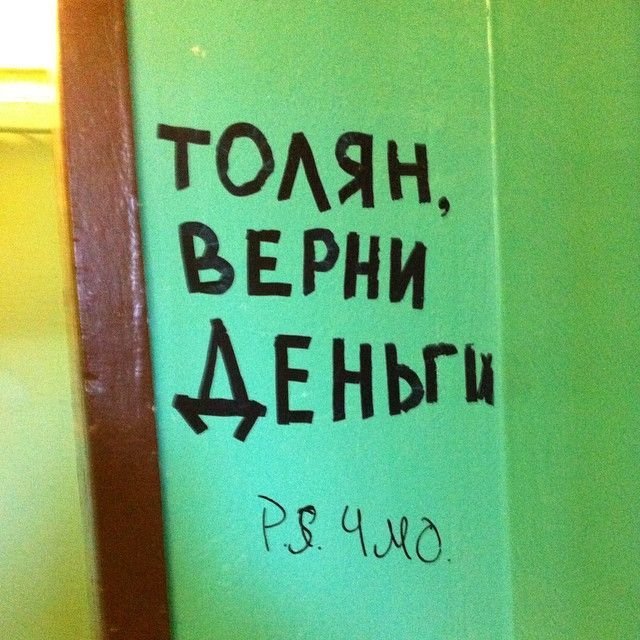 ТОЛЯН,
ВЕРНИ
ДЕНЬГИ
P.S. ЧМО.